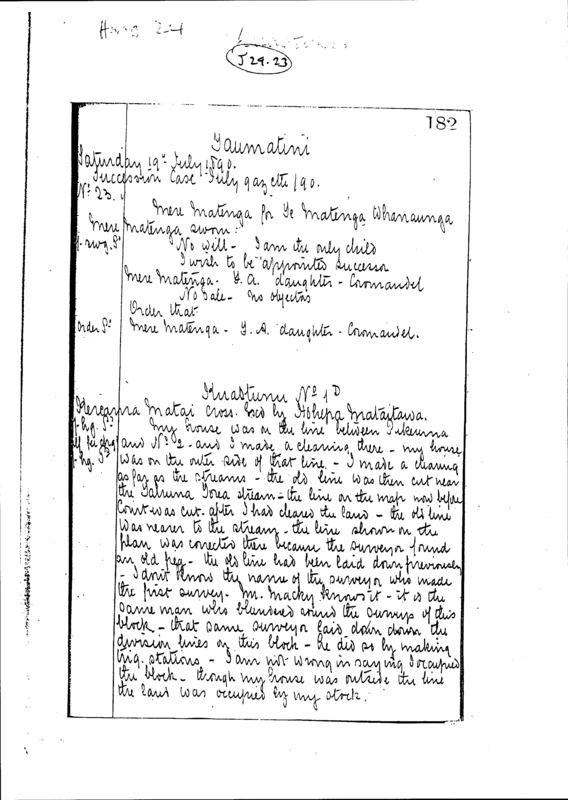 J 29.23
182
Taumatini
Saturday 19th July 1890.
Succession Case July gazette /90.
No 23.
Mere Matenga for Te Matenga Whanaunga
Mere Matenga sworn:
No will - I am the only child
I wish to be appointed successor
Mere Matenga - F.A. daughter - Coromandel
No Sale - No objectors
Order that
Mere Matenga - F.A. daughter - Coromandel.
Kuaotunu No 1D
Hereana Matai cross. Exd by Hohepa Mataitawa.
My house was on the line between
and No 2 - and I made a clearing there - my house
was on the outer side of that line - I made a clearing
as far as the streams - the old line was then cut near
the stream - the line on the map now before
Court was cut after I had cleared the land - the old line
was nearer to the stream - the line shown on the
plan was corrected there because the surveyor found
an old peg - the old line had been laid down previously
- I don't know the name of the surveyor who made
the first survey. Mr. Macky knows it - it is the
same man who blundered round the surveys of this
block - that same surveyor laid down down the
division lines on this block - he did so by making
trig. stations - I am not wrong in saying I occupied
the block - though my house was outside the line
the land was occupied by my stock.